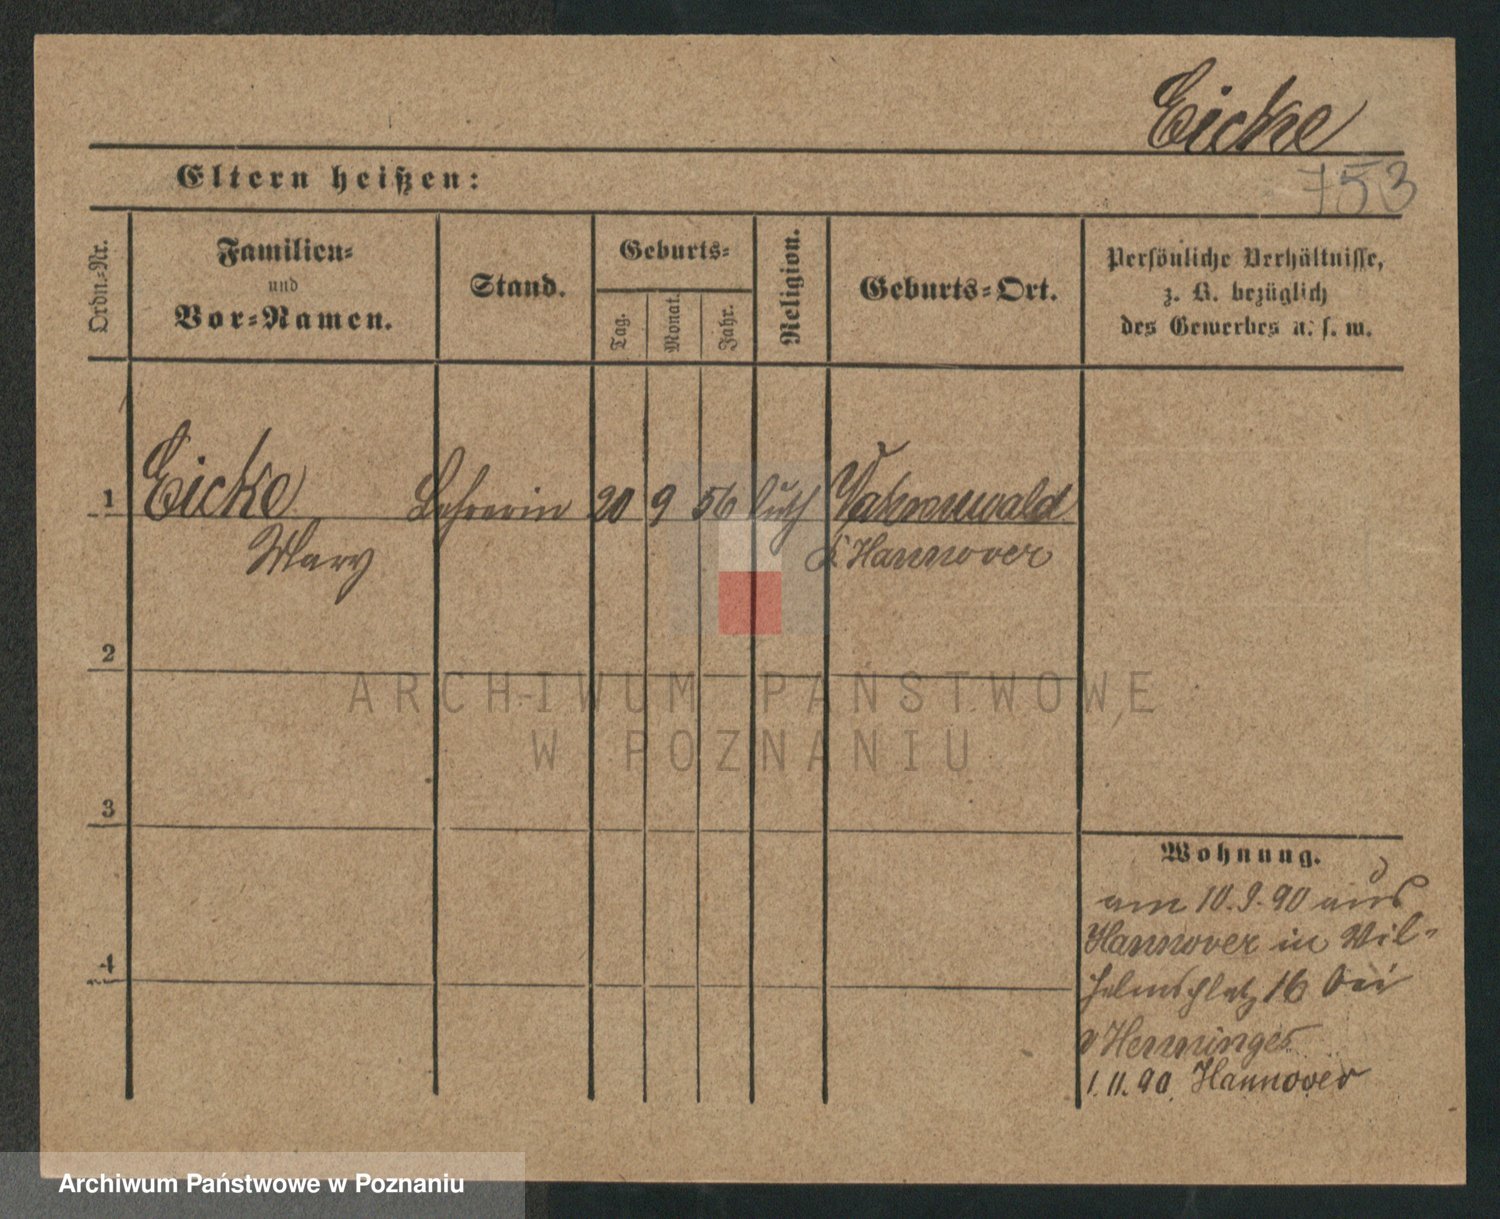 Eicke
753
Eltern heißen:
Ordn.-Nr.
Familien-
und
Vor-Namen.
Stand.
Geburts-
Tag.
Monat.
Jahr.
Religion.
Geburts-Ort.
Persönliche Verhältnisse,
z. B. bezüglich
des Gewerbes u. s. w.
1 Eicke Lehrerin 20 9 56 luth
Mary Hannover
2
ARCHIWUM PAŃSTWOWE
W POZNANIU
3
4
Wohnung.
am 10.9.90 aus
Hannover in Wil-
helmsplatz 16 bei
v Henninges
1.11.90 Hannover
Archiwum Państwowe w Poznaniu